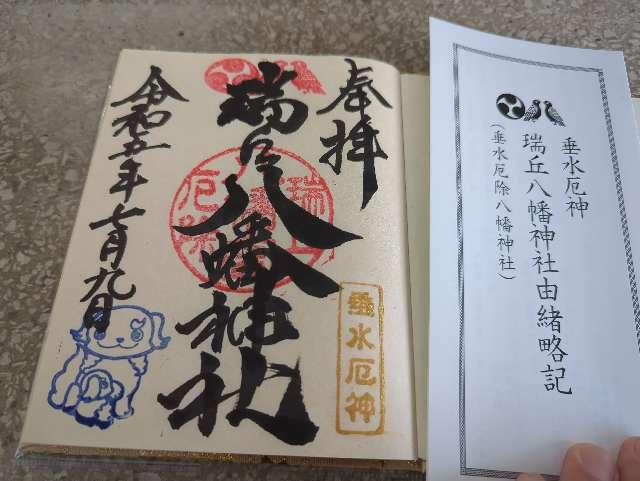 垂水厄神
瑞丘八幡神社由緒略記
(垂水厄除八幡神社)
奉拝
瑞丘八幡神社
令和五年七月九日
瑞丘
厄除
垂水厄神